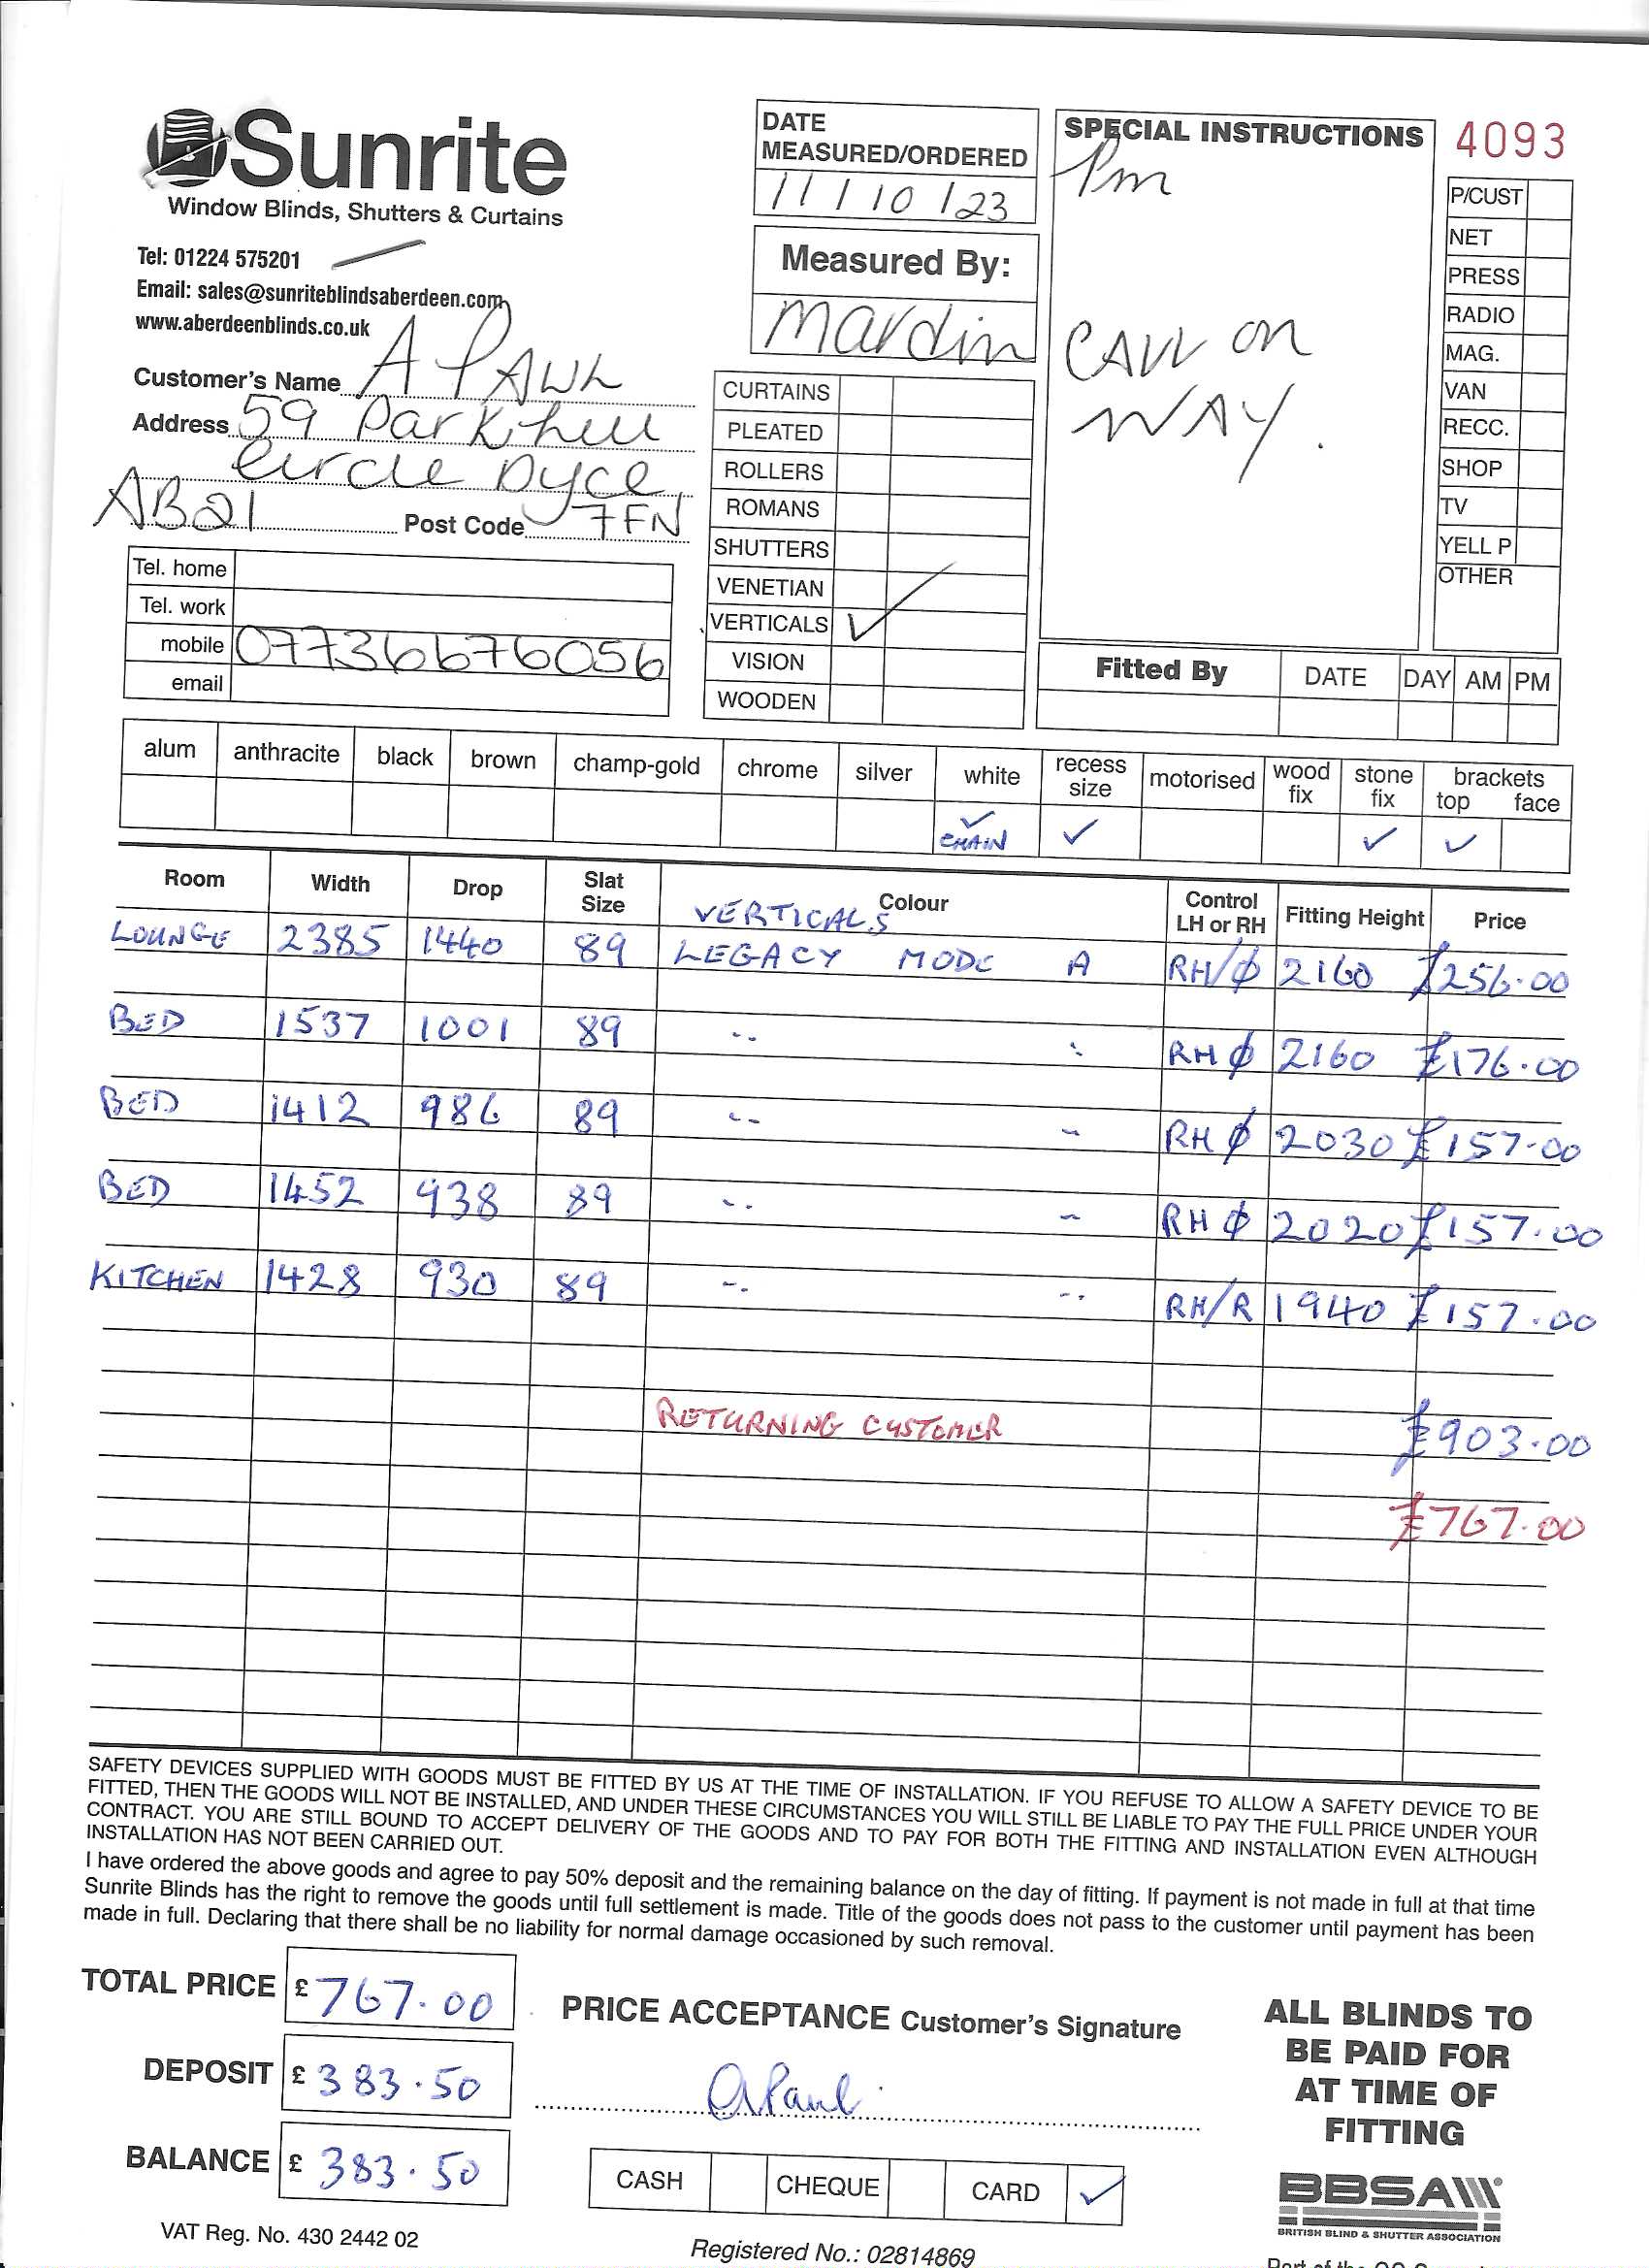 Sunrite
Window Blinds, Shutters & Curtains
Tel: 01224 575201
Email: sales@sunriteblindsaberdeen.com
www.aberdeenblinds.co.uk
Customer's Name A PAUL
Address 59 Parkhill
Circle Dyce
AB21 Post Code 7FN
Tel. home
Tel. work
mobile 07736676056
email
DATE
MEASURED/ORDERED
11/10/23
Measured By:
Martin
CURTAINS
PLEATED
ROLLERS
ROMANS
SHUTTERS
VENETIAN
VERTICALS ✓
VISION
WOODEN
SPECIAL INSTRUCTIONS
Pm
CALL on
WAY.
4093
P/CUST
NET
PRESS
RADIO
MAG.
VAN
RECC.
SHOP
TV
YELL P
OTHER
Fitted By DATE DAY AM PM
alum anthracite black brown champ-gold chrome silver white recess size motorised wood fix stone fix brackets top face
✓ CHAIN ✓ ✓ ✓
Room Width Drop Slat Size Colour Control LH or RH Fitting Height Price
VERTICALS
LOUNGE 2385 1440 89 LEGACY MODE A RH/ϕ 2160 £256.00
BED 1537 1001 89 " " RH ϕ 2160 £176.00
BED 1412 986 89 " " RH ϕ 2030 £157.00
BED 1452 938 89 " " RH ϕ 2020 £157.00
KITCHEN 1428 930 89 " " RH/R 1940 £157.00
RETURNING CUSTOMER £903.00
£767.00
SAFETY DEVICES SUPPLIED WITH GOODS MUST BE FITTED BY US AT THE TIME OF INSTALLATION. IF YOU REFUSE TO ALLOW A SAFETY DEVICE TO BE
FITTED, THEN THE GOODS WILL NOT BE INSTALLED, AND UNDER THESE CIRCUMSTANCES YOU WILL STILL BE LIABLE TO PAY THE FULL PRICE UNDER YOUR
CONTRACT. YOU ARE STILL BOUND TO ACCEPT DELIVERY OF THE GOODS AND TO PAY FOR BOTH THE FITTING AND INSTALLATION EVEN ALTHOUGH
INSTALLATION HAS NOT BEEN CARRIED OUT.
I have ordered the above goods and agree to pay 50% deposit and the remaining balance on the day of fitting. If payment is not made in full at that time
Sunrite Blinds has the right to remove the goods until full settlement is made. Title of the goods does not pass to the customer until payment has been
made in full. Declaring that there shall be no liability for normal damage occasioned by such removal.
TOTAL PRICE £ 767.00
DEPOSIT £ 383.50
BALANCE £ 383.50
PRICE ACCEPTANCE Customer's Signature
A Paul
CASH CHEQUE CARD ✓
ALL BLINDS TO
BE PAID FOR
AT TIME OF
FITTING
BBSA
BRITISH BLIND & SHUTTER ASSOCIATION
VAT Reg. No. 430 2442 02
Registered No.: 02814869